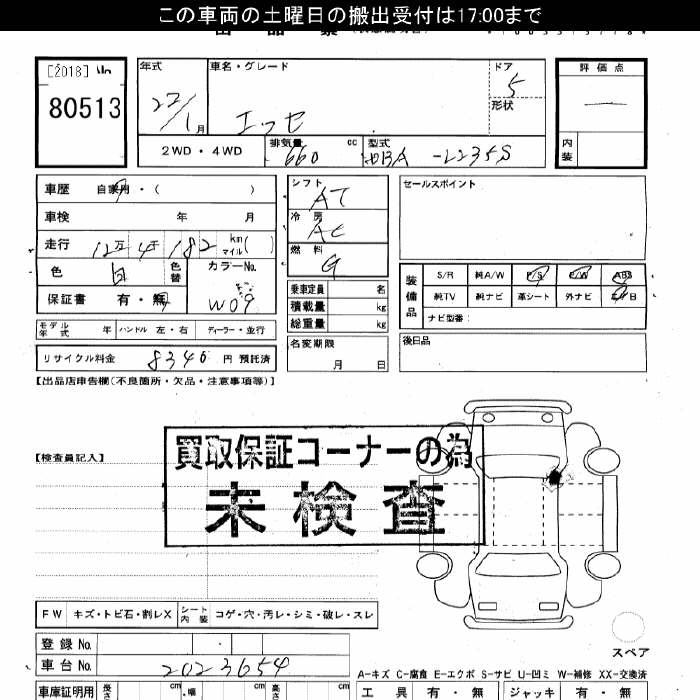 この車両の土曜日の搬出受付は17:00まで
[2018]
80513
年式 車名・グレード ドア 評価点
22/1月 エッセ 5 形状
2WD・4WD 排気量 660 cc 型式 -L235S 内装
車歴 自家用・( )
車検 年 月
走行 12万4千182 km マイル( )
色 白 色替 カラーNo. W09
保証書 有・無
モデル年式 年 ハンドル 左・右 ディーラー・並行
リサイクル料金 8340 円 預託済
シフト AT
冷房 AC
燃料 G
乗車定員 名
積載量 kg
総重量 kg
名変期限 月 日
セールスポイント
装備品 S/R 純A/W P/S P/W ABS
純TV 純ナビ 革シート 外ナビ
ナビ型番:
後日品
【出品店申告欄(不良箇所・欠品・注意事項等)】
【検査員記入】
買取保証コーナーの為
未検査
FW キズ・トビ石・割レX シート内装 コゲ・穴・汚レ・シミ・破レ・スレ
登録No.
車台No. 2023654
スペア
A-キズ C-腐食 E-エクボ S-サビ U-凹ミ W-補修 XX-交換済
車庫証明用 長さ cm 幅 cm 高さ cm 工具 有・無 ジャッキ 有・無